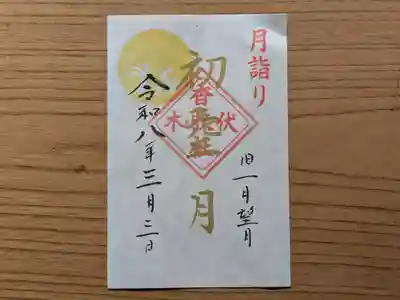 月詣り
旧一月望月
初
月
香
伏木
令和八年三月三日